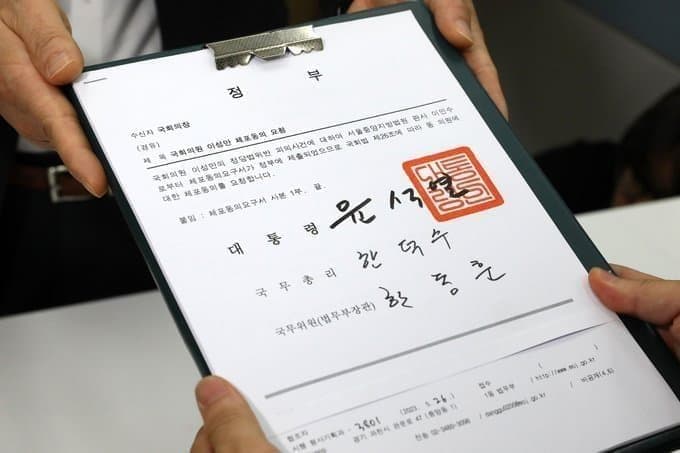 정 부
수신자 국회의장
(경유)
제 목 국회의원 이성만 체포동의 요청
국회의원 이성만의 정당법위반 피의사건에 대하여 서울중앙지방법원 판사 이민수
로부터 체포동의요구서가 정부에 제출되었으므로 국회법 제26조에 따라 동 의원에
대한 체포동의를 요청합니다.
붙임 : 체포동의요구서 사본 1부. 끝.
대 통 령 윤석열
국 무 총 리 한덕수
국무위원(법무부장관) 한동훈
협조자
시행 형사기획과 - 3801 (2023. 5. 26) 접수 ( )
경기 과천시 관문로 47 (중앙동 1) 1동 법무부 / http://www.moj.go.kr
전송 02-3480- / @moj.go.kr / 비공개(4,6)